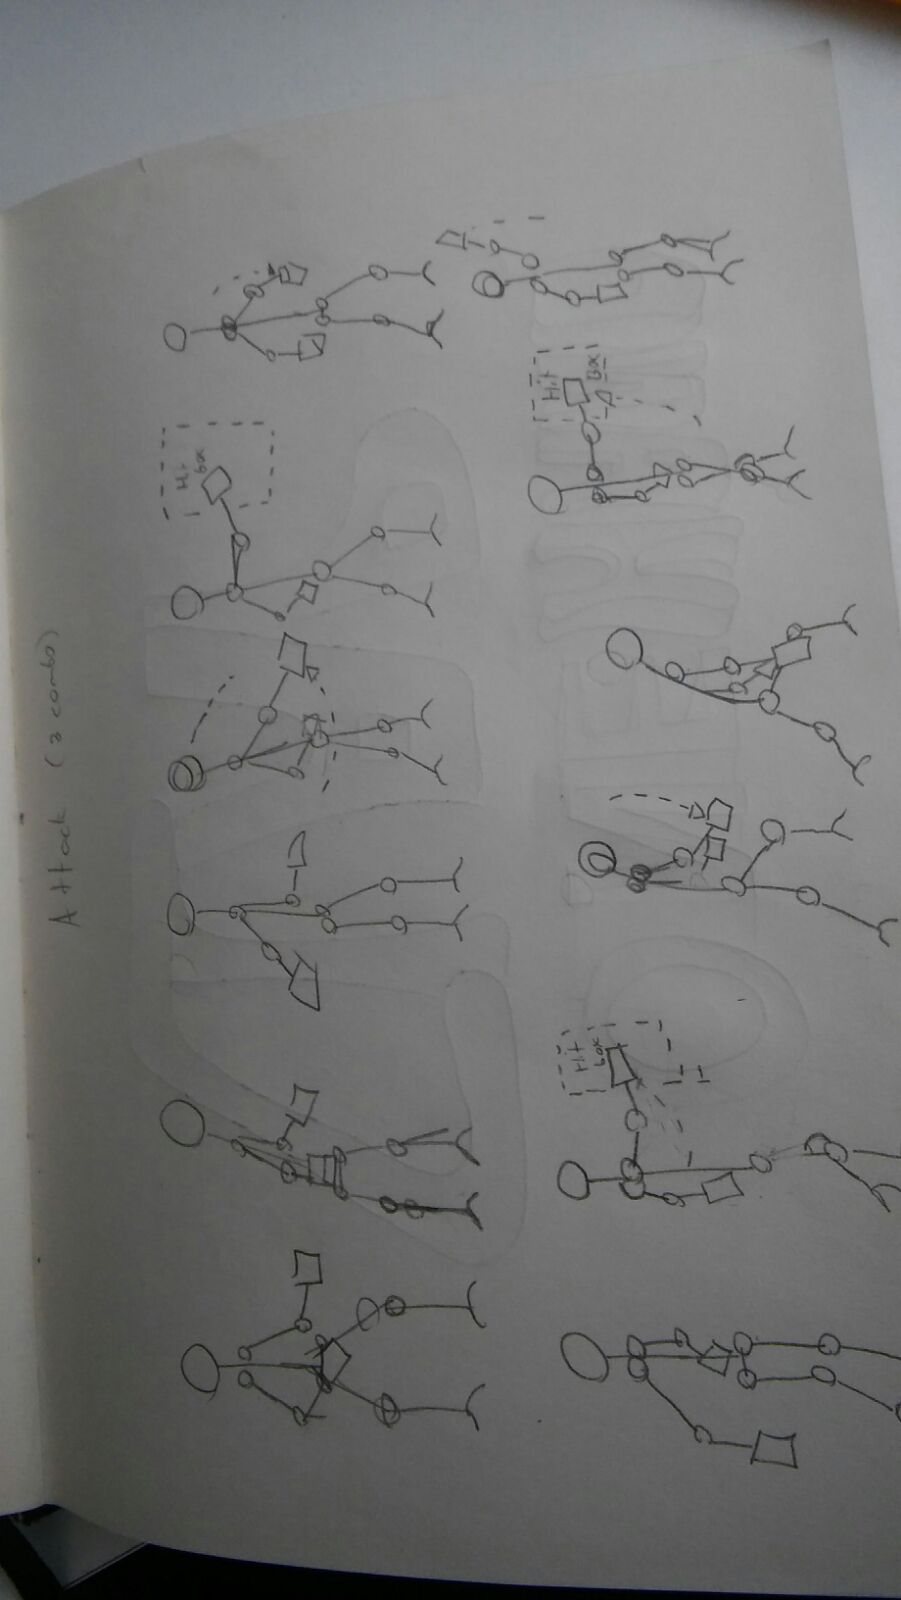 Attack (3 combo)
Hit
box
Hit
Box
Hit
box